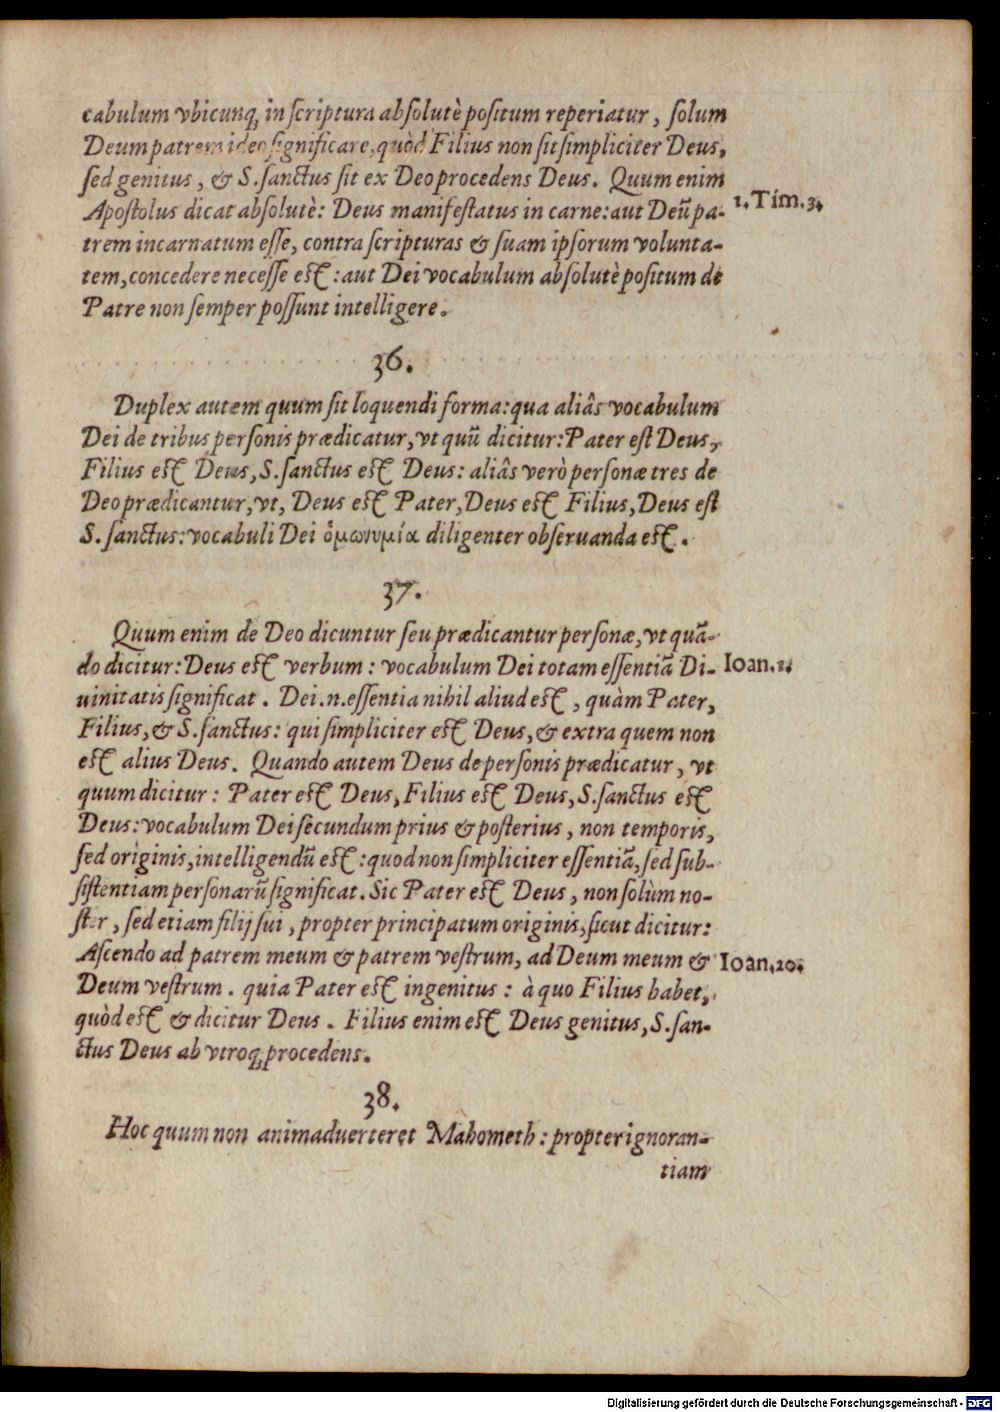 cabulum vbicunq; in scriptura absolutè positum reperiatur, solum
Deum patrem ideo significare, quòd Filius non sit simpliciter Deus,
sed genitus, & S. sanctus sit ex Deo procedens Deus. Quum enim
Apostolus dicat absolutè: Deus manifestatus in carne: aut Deũ pa- 1. Tim. 3.
trem incarnatum esse, contra scripturas & suam ipsorum volunta-
tem, concedere necesse est: aut Dei vocabulum absolutè positum de
Patre non semper possunt intelligere.
36.
Duplex autem quum sit loquendi forma: qua aliâs vocabulum
Dei de tribus personis prædicatur, vt quũ dicitur: Pater est Deus,
Filius est Deus, S. sanctus est Deus: aliâs verò personæ tres de
Deo prædicantur, vt, Deus est Pater, Deus est Filius, Deus est
S. sanctus: vocabuli Dei ὁμωνυμία diligenter obseruanda est.
37.
Quum enim de Deo dicuntur seu prædicantur personæ, vt quã-
do dicitur: Deus est verbum: vocabulum Dei totam essentiã Di- Ioan. 1.
uinitatis significat. Dei .n. essentia nihil aliud est, quàm Pater,
Filius, & S. sanctus: qui simpliciter est Deus, & extra quem non
est alius Deus. Quando autem Deus de personis prædicatur, vt
quum dicitur: Pater est Deus, Filius est Deus, S. sanctus est
Deus: vocabulum Dei secundum prius & posterius, non temporis,
sed originis, intelligendũ est: quod non simpliciter essentiã, sed sub-
sistentiam personarũ significat. Sic Pater est Deus, non solùm no-
ster, sed etiam filij sui, propter principatum originis, sicut dicitur:
Ascendo ad patrem meum & patrem vestrum, ad Deum meum & Ioan. 20.
Deum vestrum. quia Pater est ingenitus: à quo Filius habet,
quòd est & dicitur Deus. Filius enim est Deus genitus, S. san-
ctus Deus ab vtroq; procedens.
38.
Hoc quum non animaduerteret Mahometh: propter ignoran-
tiam
Digitalisierung gefördert durch die Deutsche Forschungsgemeinschaft - DFG